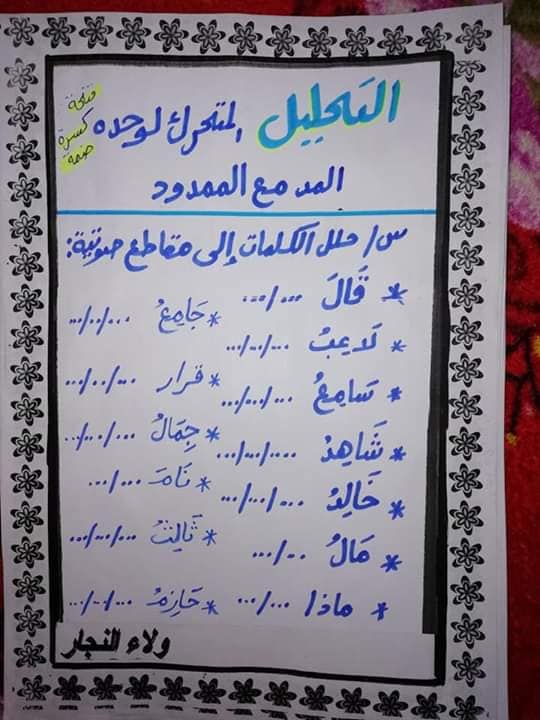 التحليل المتحرك لوحده
فتحة
كسرة
ضمة
المد مع الممدود
س/ حلل الكلمات إلى مقاطع صوتية:
* قَالَ .../...
* جَامِعُ .../.../...
* لاعِبُ .../.../...
* قرار .../.../...
* سَامِعُ .../.../...
* جِمَالُ .../.../...
* شَاهِدُ .../.../...
* نَامَ .../...
* خَالِدُ .../.../...
* ثَالِثُ .../.../...
* مَالُ .../...
* ماذا .../...
* حَازِمُ .../.../...
ولاء النجار